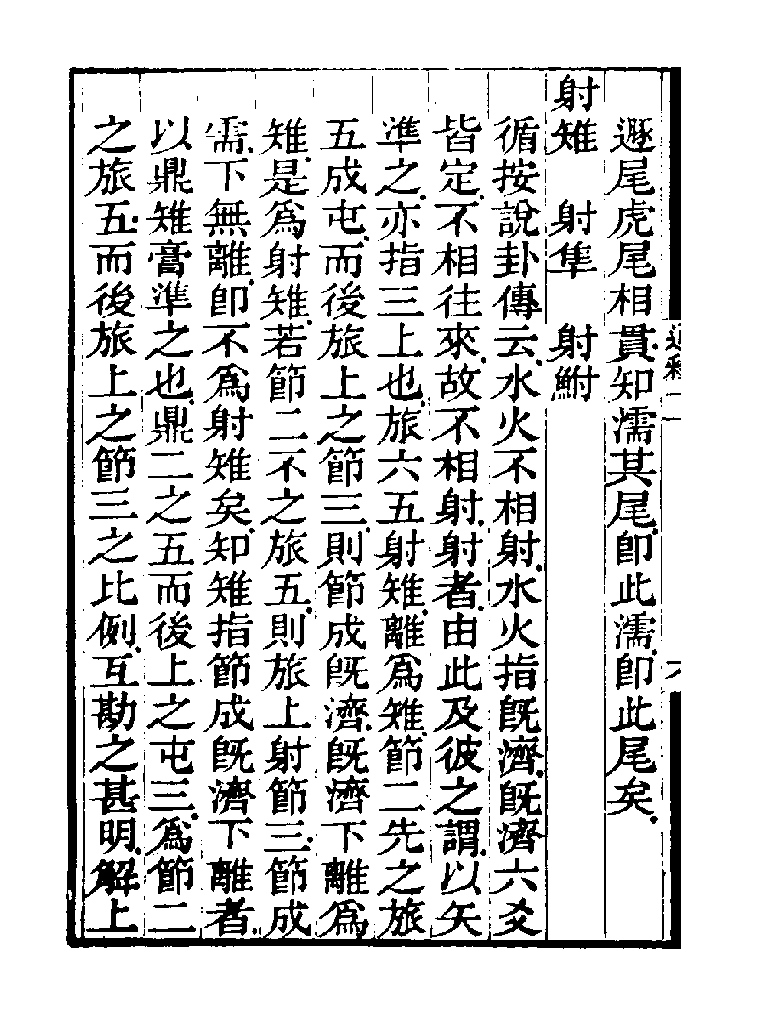 遯尾虎尾相貫知濡其尾卽此濡卽此尾矣
射雉　射隼　射鮒
循按說卦傳云水火不相射水火指旣濟旣濟六爻
皆定不相往來故不相射射者由此及彼之謂以矢
準之亦指三上也旅六五射雉離爲雉節二先之旅
五成屯而後旅上之節三則節成旣濟旣濟下離爲
雉是爲射雉若節二不之旅五則旅上射節三節成
需下無離卽不爲射雉矣知雉指節成旣濟下離者
以鼎雉膏準之也鼎二之五而後上之屯三爲節二
之旅五而後旅上之節三之比例互勘之甚明解上
通釋十一
六